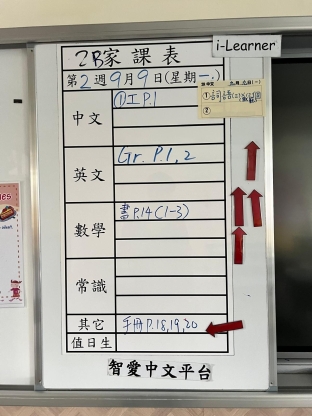 i-Learner
2B家課表
第2週9月9日(星期一)
九月九日(一)
①詞語
②
中文
①工P.1
英文
Gr. P.1, 2
數學
書P.14 (1-3)
常識
其它
手冊P.18,19,20
值日生
智愛中文平台